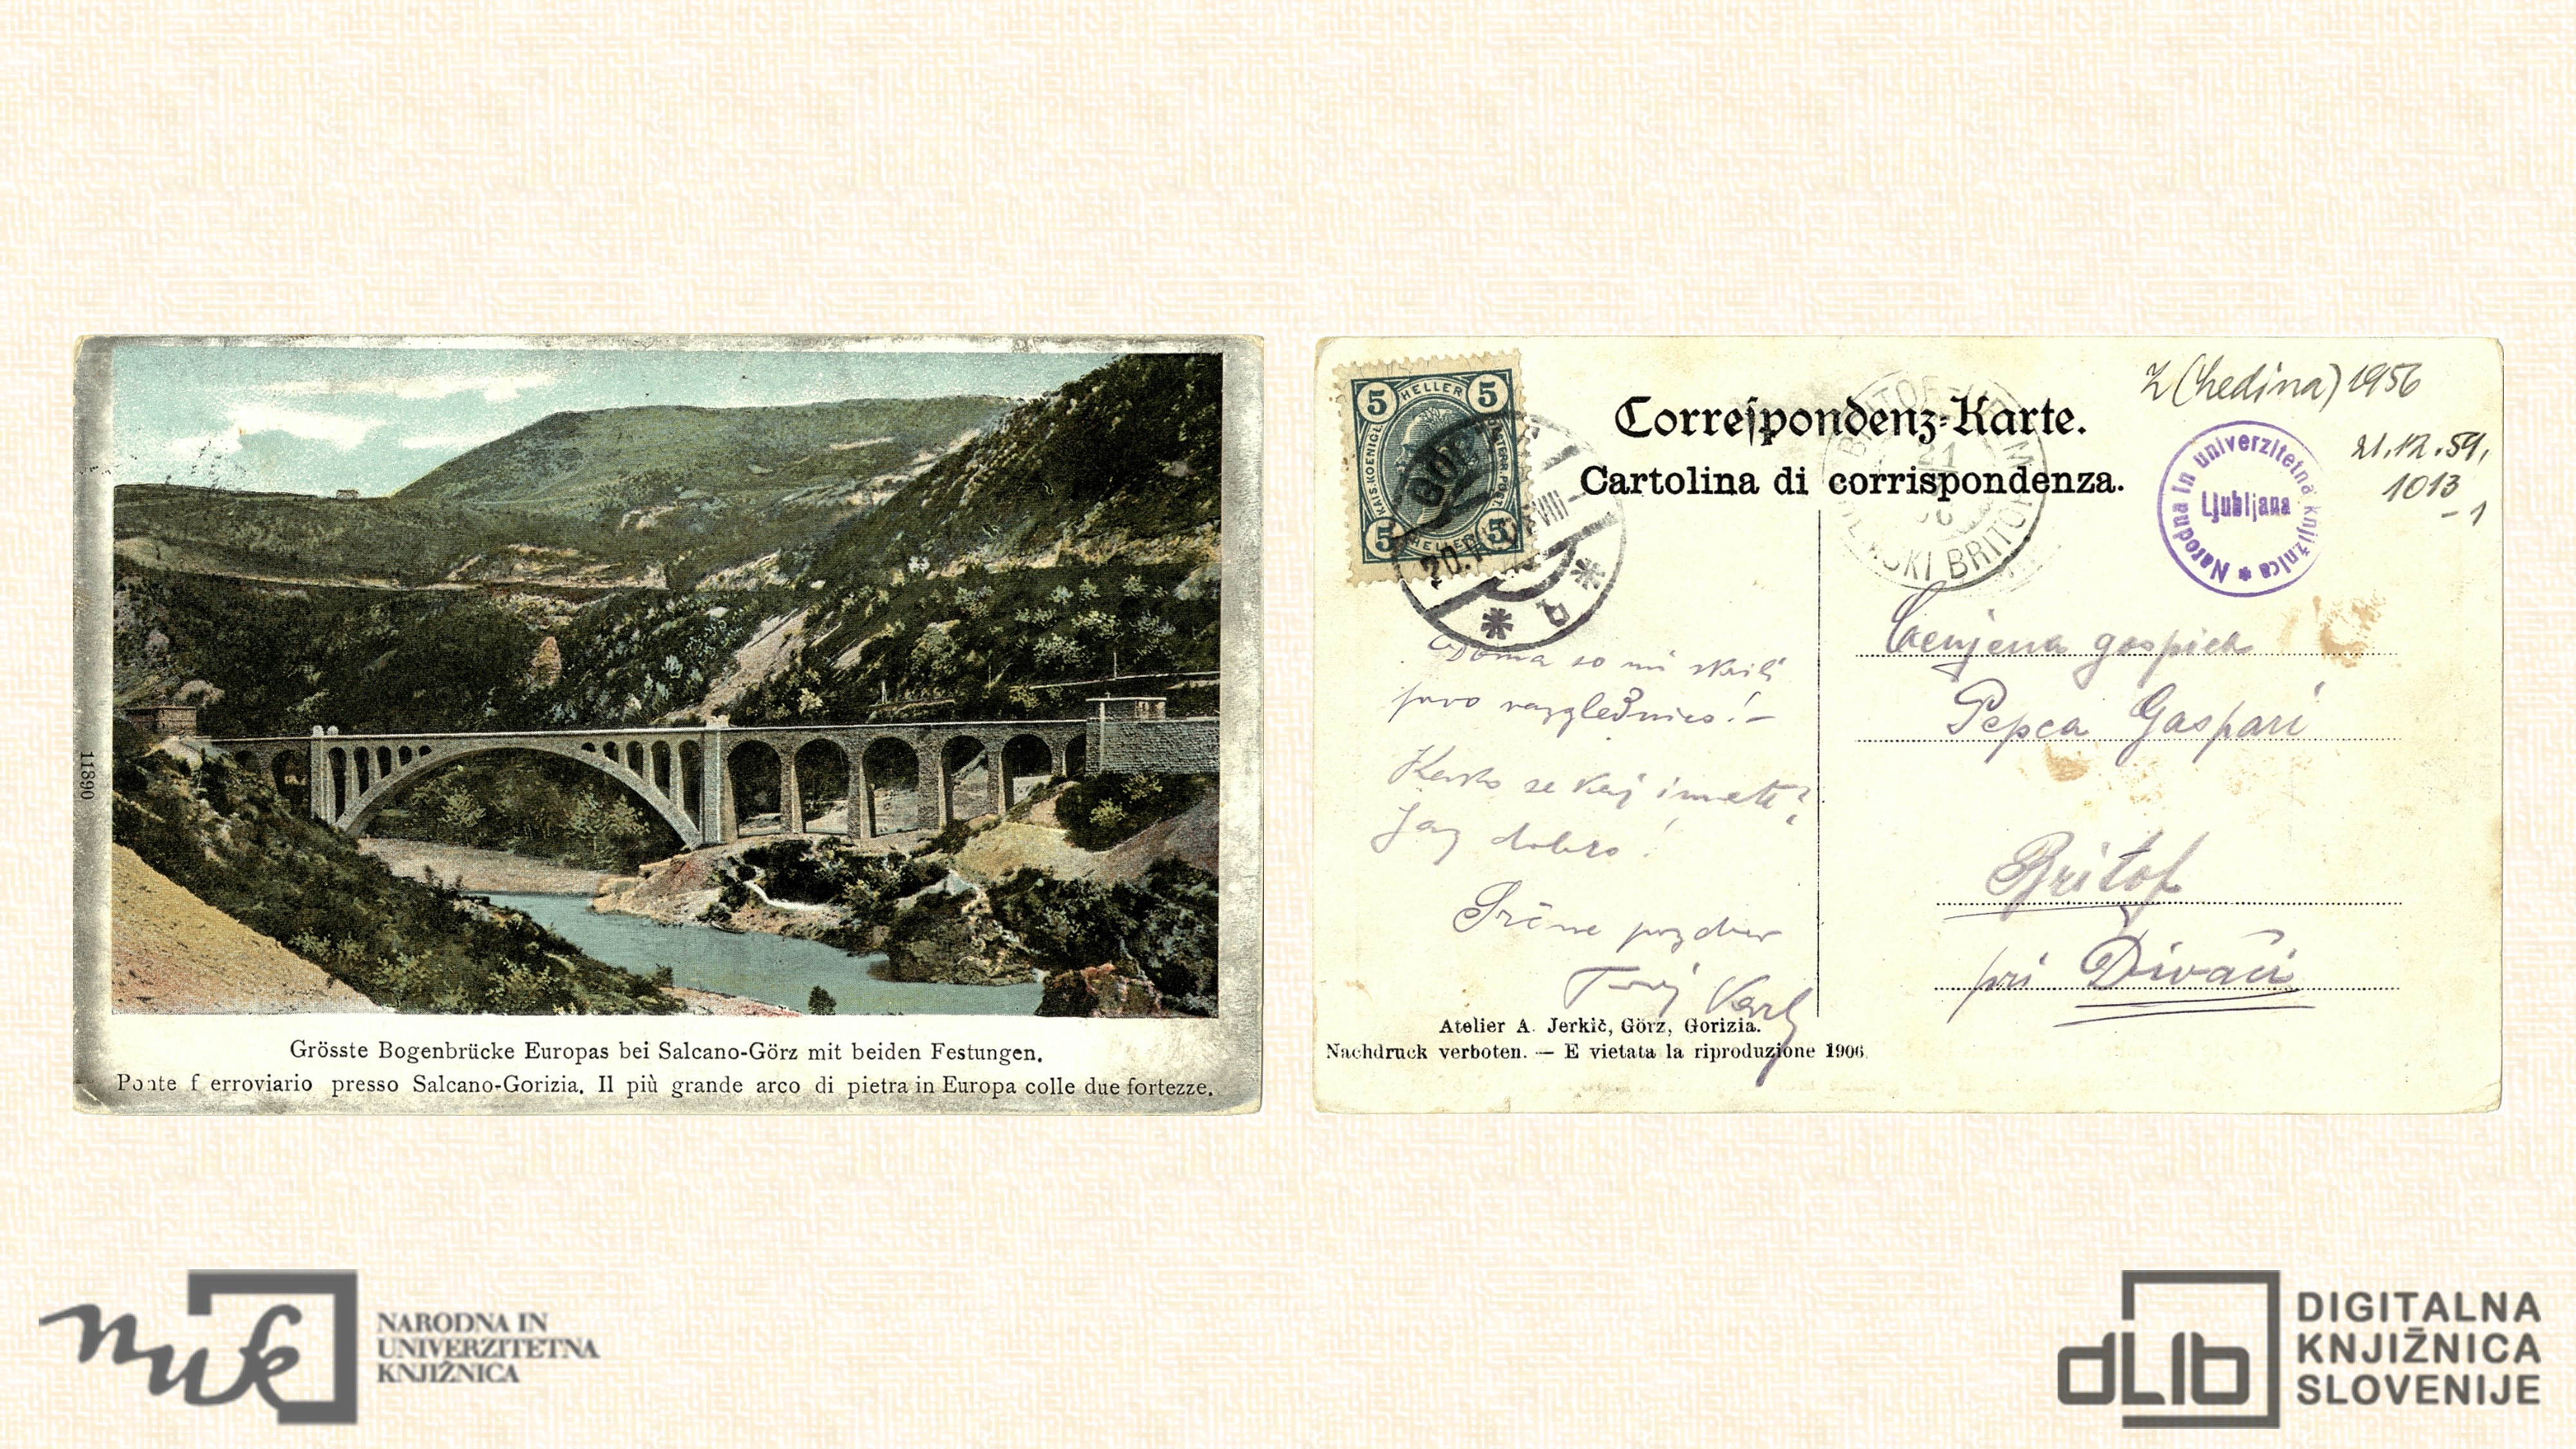 11890
Grösste Bogenbrücke Europas bei Salcano-Görz mit beiden Festungen.
Ponte ferroviario presso Salcano-Gorizia. Il più grande arco di pietra in Europa colle due fortezze.
5 HELLER 5
5 HELLER 5
Correspondenz-Karte.
Cartolina di corrispondenza.
Z (hedina) 1956
21.12.59.
1013
-1
Narodna in univerzitetna knjižnica *
Ljubljana
21
BRITOF
Doma so mi
prvo razglednico! -
Kako se kaj imate?
Jaz dobro!
Srčne pozdrave
Tvoj Karl
Cenjena gospica
Pepca Gaspari
Britof
pri Divači
Atelier A. Jerkič, Görz, Gorizia.
Nachdruck verboten. — E vietata la riproduzione 1906
nuk
NARODNA IN
UNIVERZITETNA
KNJIŽNICA
dLib
DIGITALNA
KNJIŽNICA
SLOVENIJE